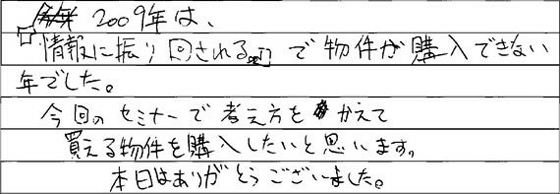 2009年は、
『情報に振り回される。』で物件が購入できない
年でした。
今回のセミナーで考え方をかえて
買える物件を購入したいと思います。
本日はありがとうございました。